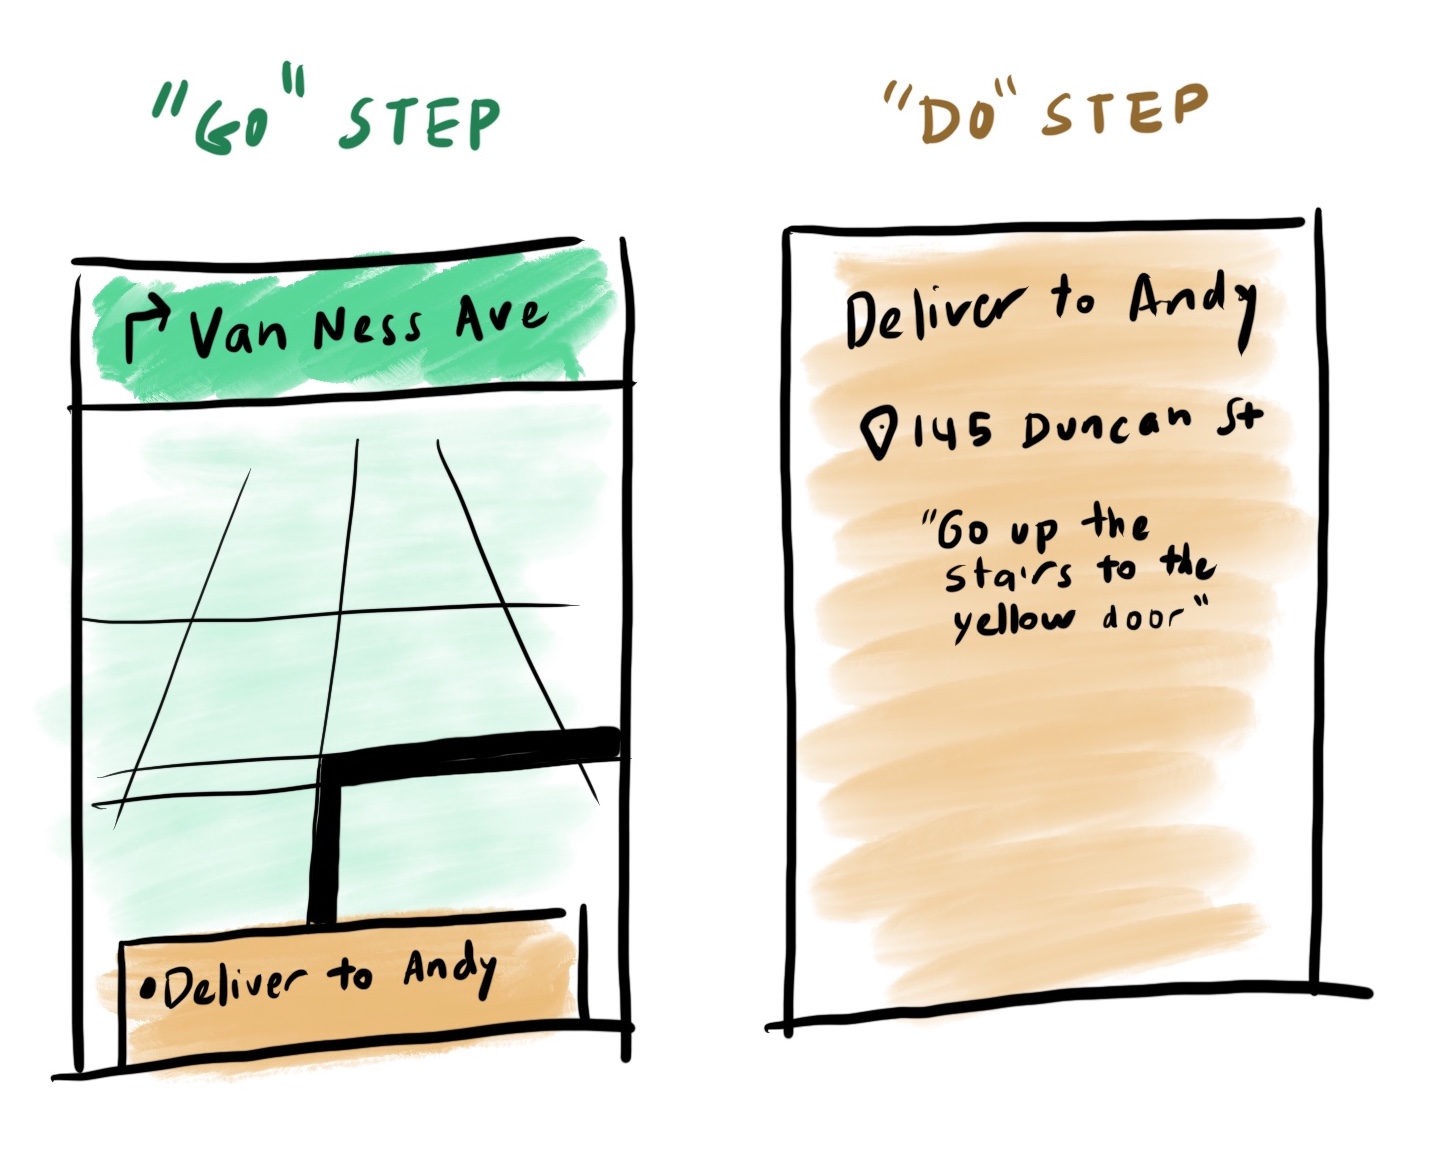 "GO" STEP
Van Ness Ave
Deliver to Andy
"DO" STEP
Deliver to Andy
145 Duncan St
"Go up the
stairs to the
yellow door"